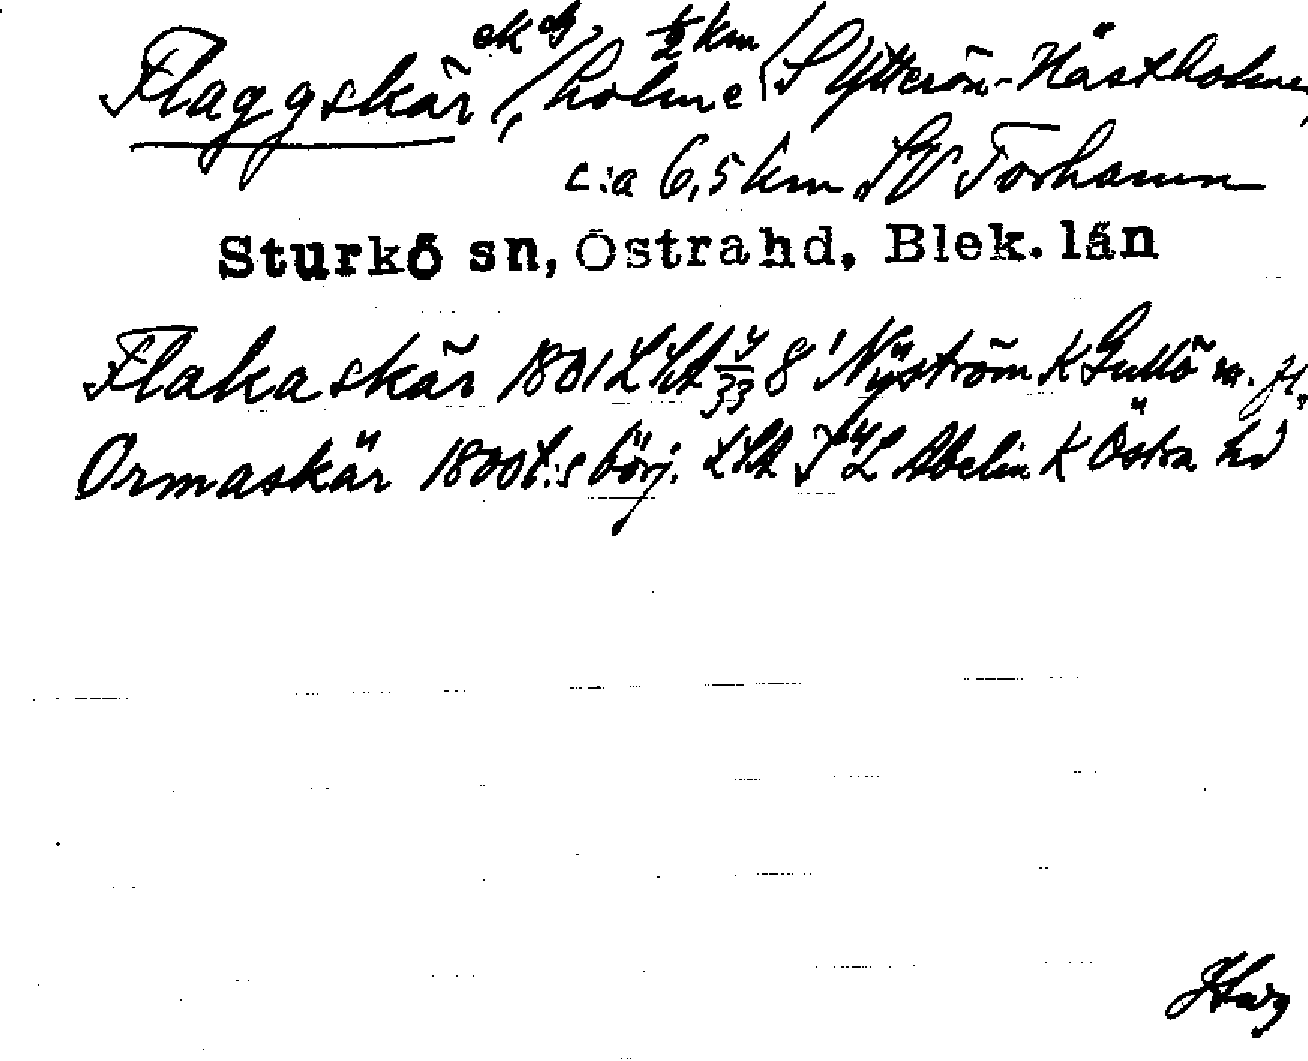 Flaggskär, holme ½ km S Ytterön-Hästholmen,
c:a 6,5 km SV Torhamn
Sturkö sn, Östra hd, Blek. län
Flakaskär 1801 LSA 8 Nyström K Gullö m. fl.
Ormaskär 1800t:s börj. LSA Abelin K Östra hd